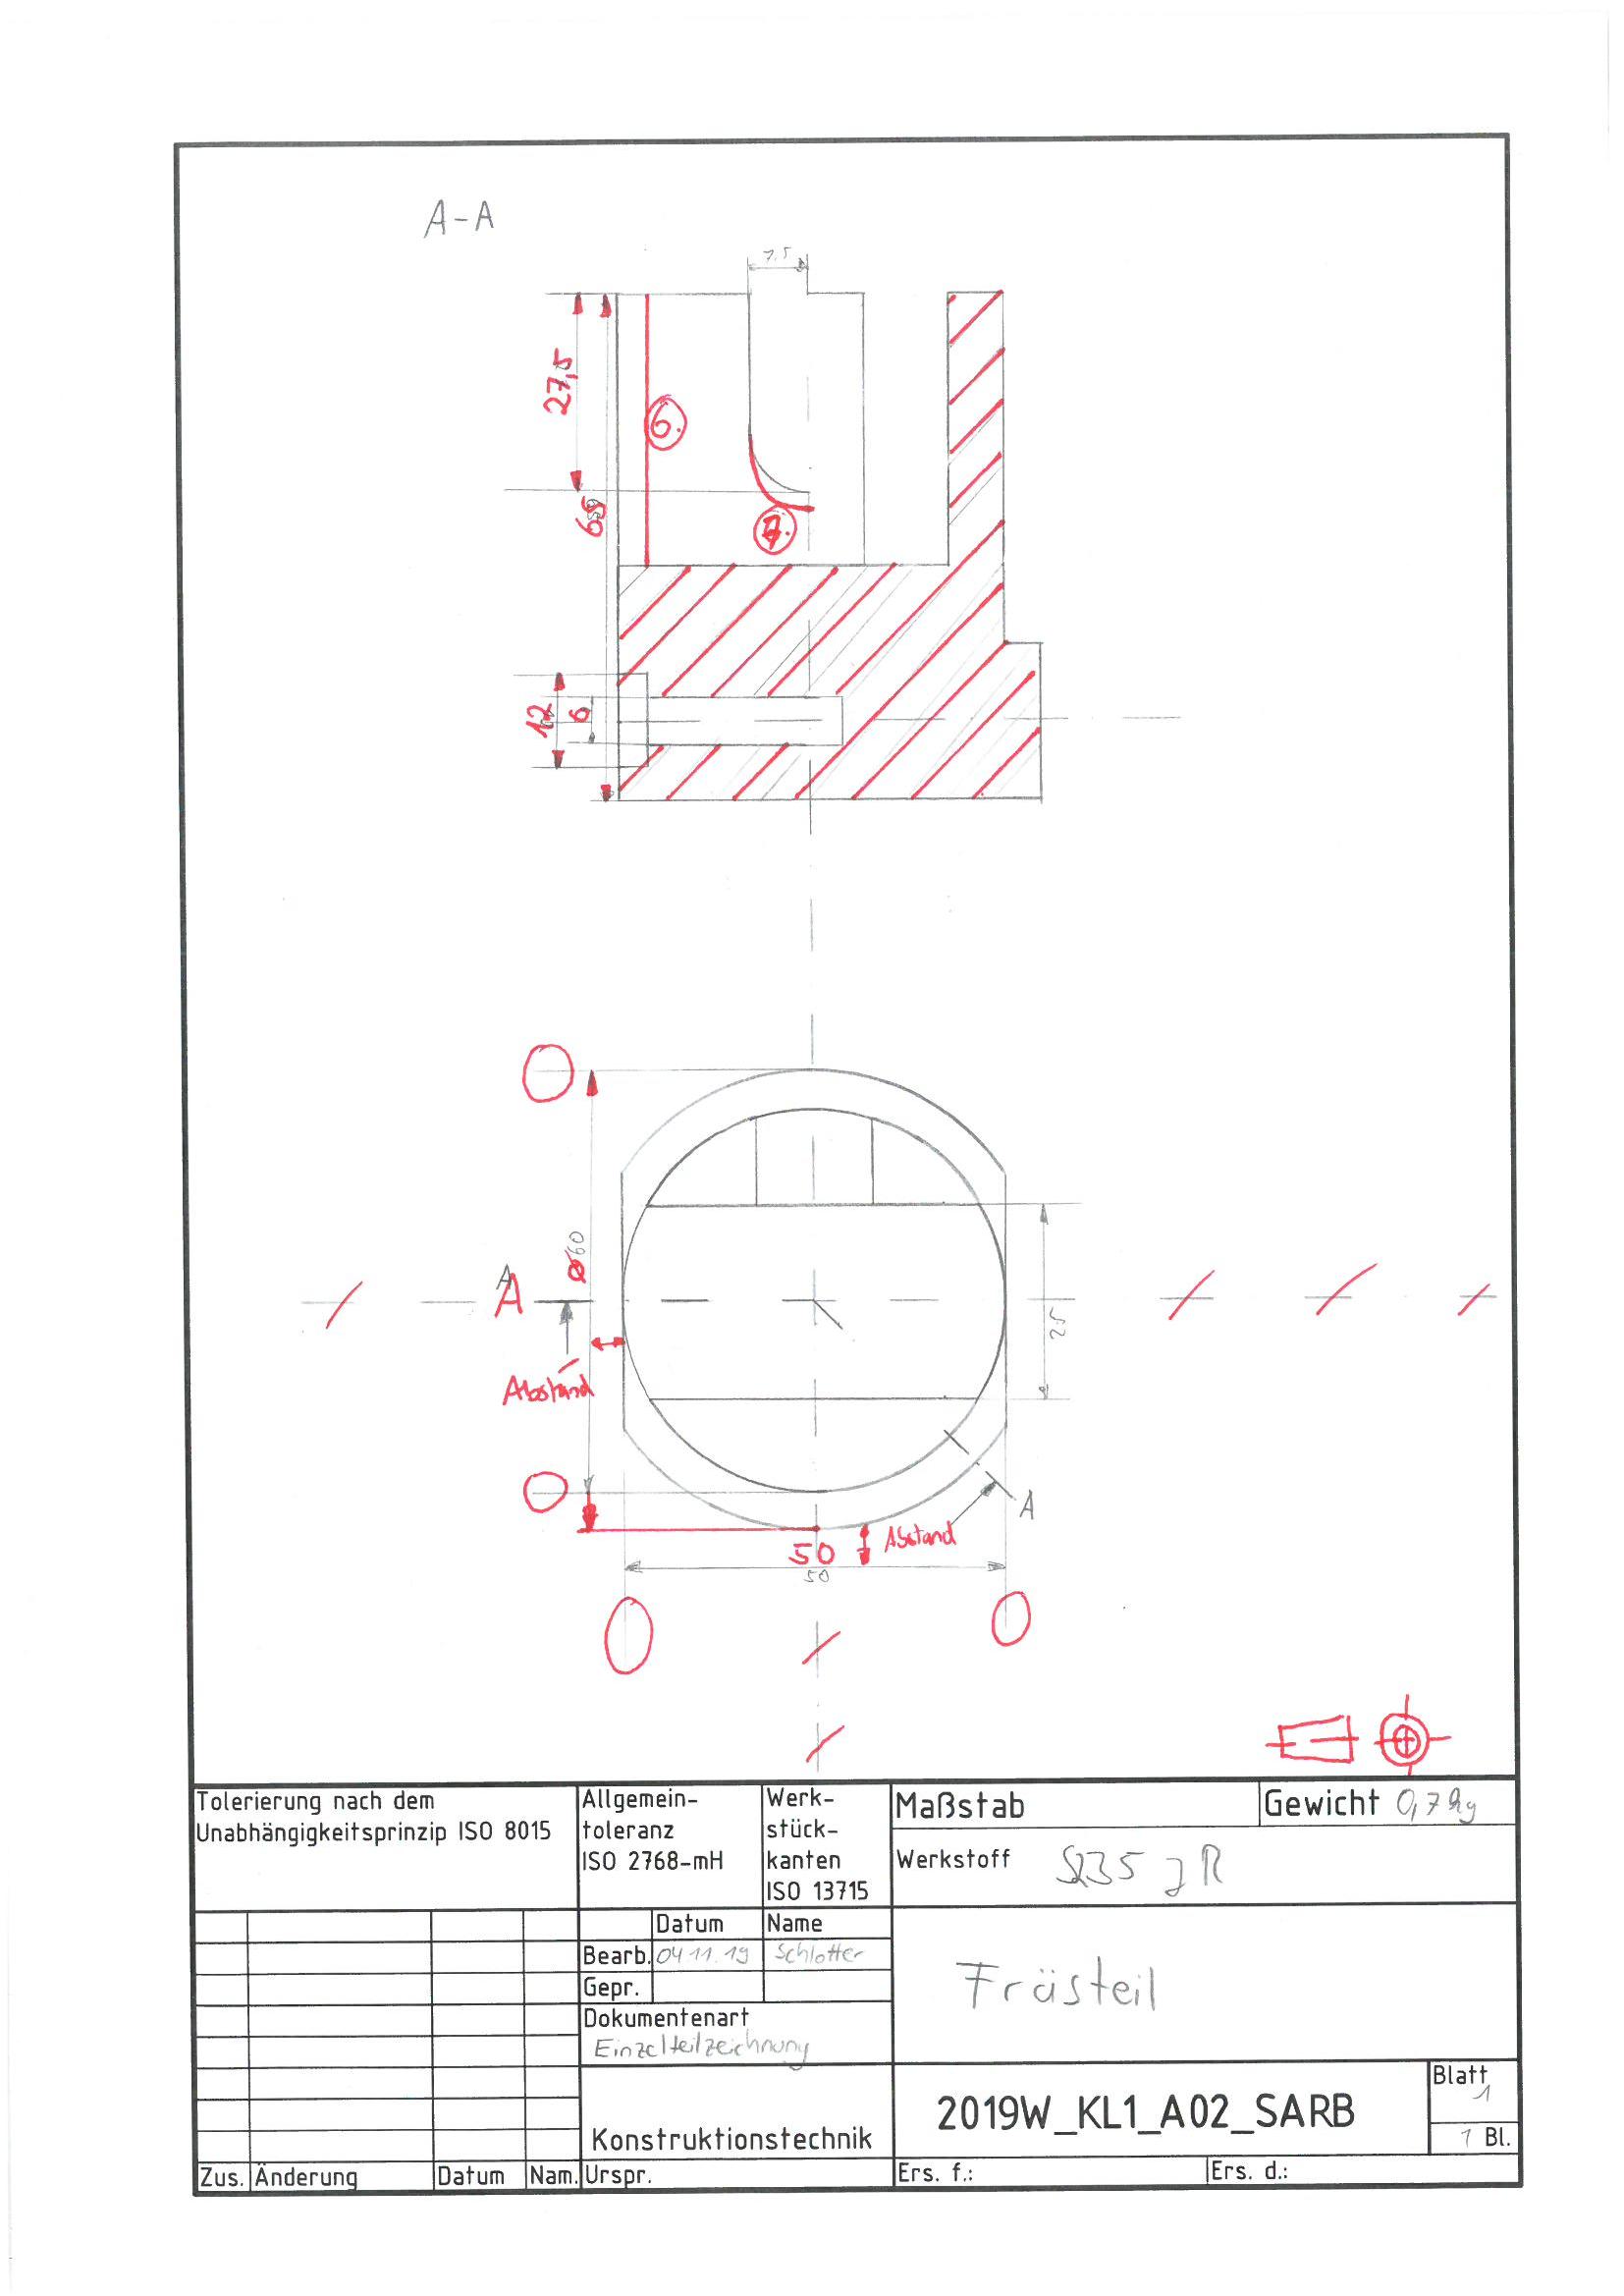 A-A
7,5
27,5
65
6.
7.
12
6
Ø60
A
A
25
Abstand
A
Abstand
50
50
Tolerierung nach dem
Unabhängigkeitsprinzip ISO 8015
Allgemein-
toleranz
ISO 2768-mH
Werk-
stück-
kanten
ISO 13715
Maßstab
Gewicht 0,7kg
Werkstoff S235 JR
Datum
Name
Bearb. 04.11.19 Schlotter
Gepr.
Dokumentenart
Einzelteilzeichnung
Frästeil
Konstruktionstechnik
2019W_KL1_A02_SARB
Blatt
1
1 Bl.
Zus. Änderung Datum Nam. Urspr. Ers. f.: Ers. d.: